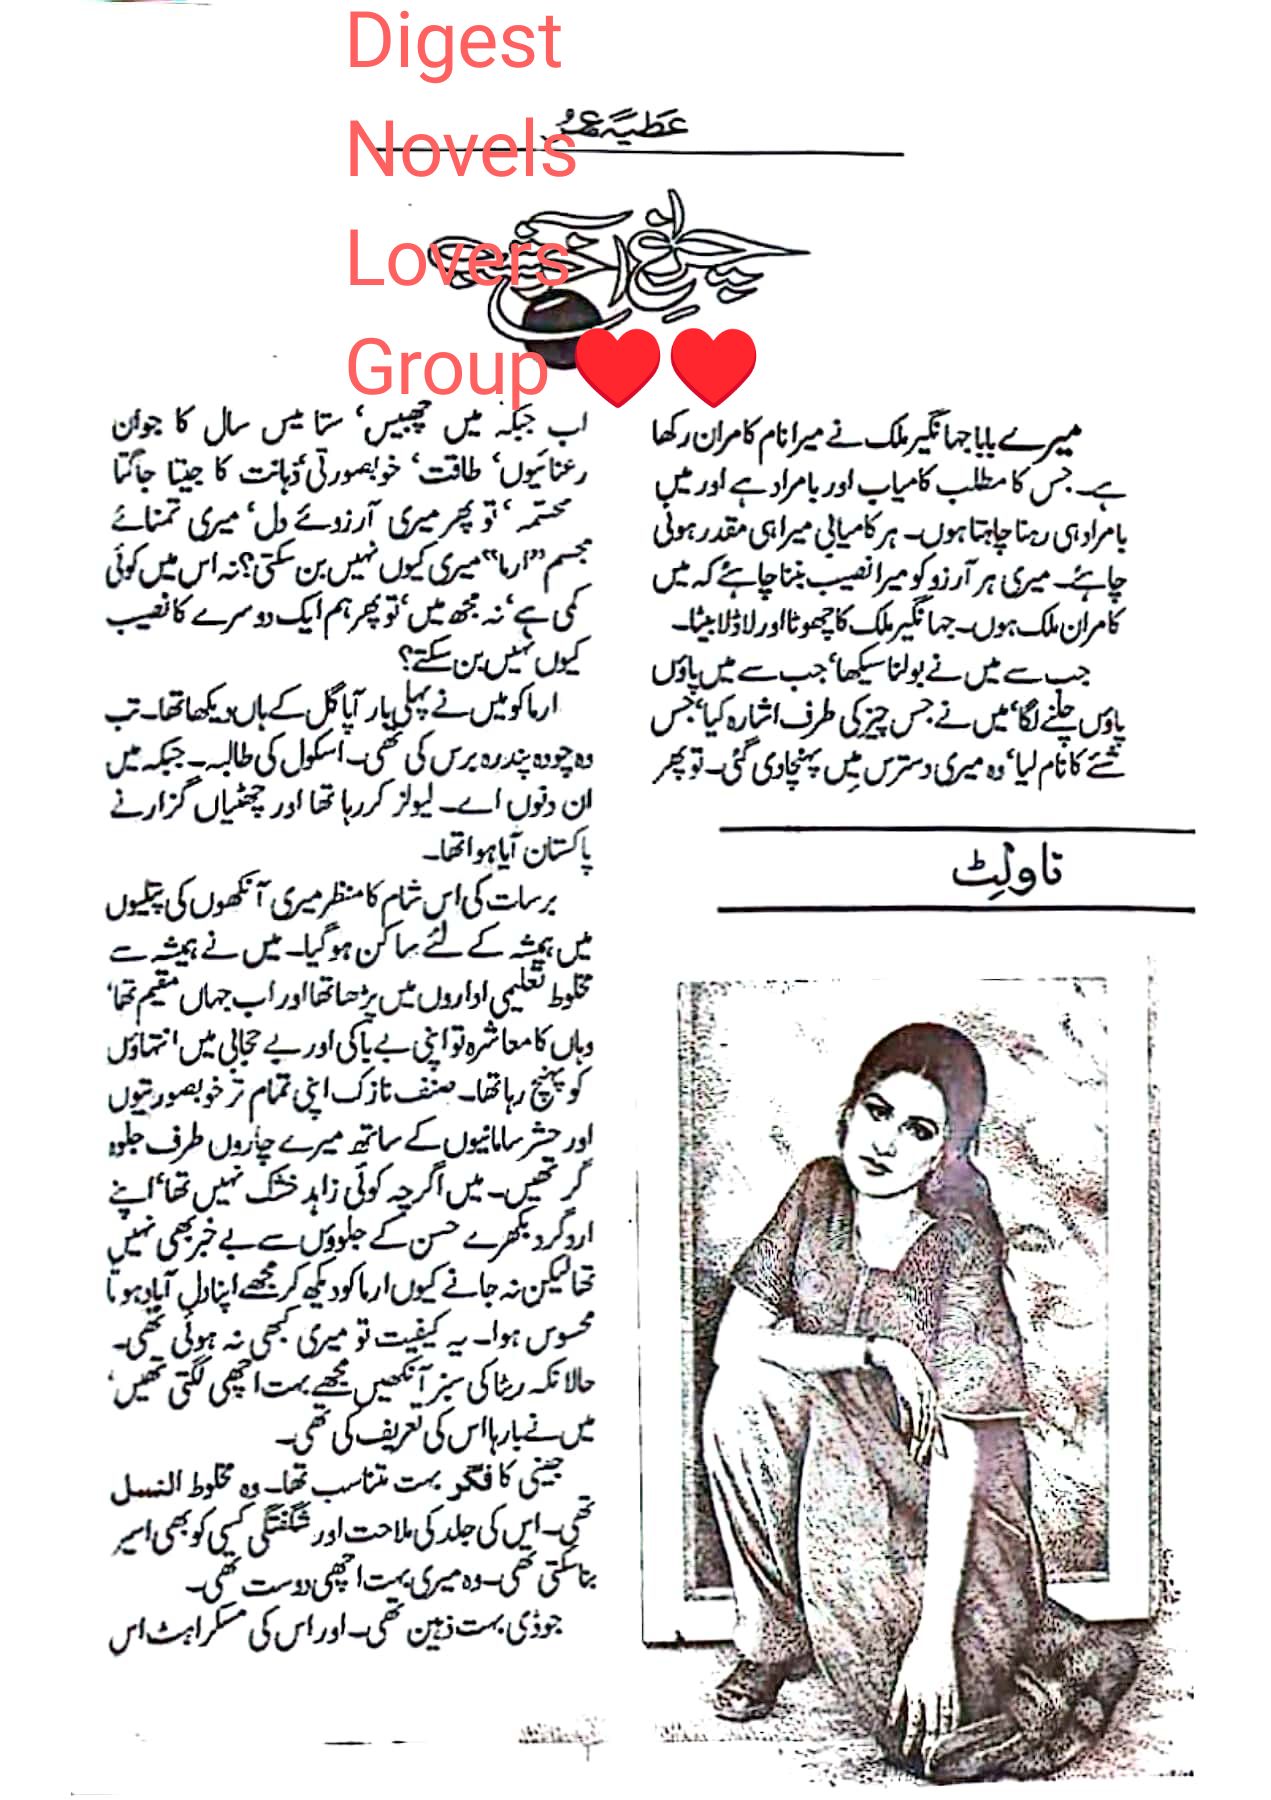 Digest
Novels
Lovers
Group ❤️❤️
عطیہ عمر
چراغ آخر شب
میرے بابا جہانگیر ملک نے میرا نام کامران رکھا
ہے۔ جس کا مطلب کامیاب اور بامراد ہے اور میں
بامراد ہی رہنا چاہتا ہوں۔ ہر کامیابی میرا ہی مقدر ہونی
چاہئے۔ میری ہر آرزو کو میرا نصیب بننا چاہئے کہ میں
کامران ملک ہوں۔ جہانگیر ملک کا چھوٹا اور لاڈلا بیٹا۔
جب سے میں نے بولنا سیکھا‘ جب سے میں پاؤں
پاؤں چلنے لگا‘ میں نے جس چیز کی طرف اشارہ کیا‘ جس
شے کا نام لیا‘ وہ میری دسترس میں پہنچا دی گئی۔ تو پھر
ناولٹ
اب جبکہ میں چھبیس‘ ستائیس سال کا جوان
رعنائیوں‘ طاقت‘ خوبصورتی‘ ذہانت کا جیتا جاگتا
مجسمہ‘ تو پھر میری آرزوئے دل‘ میری تمنائے
مجسم ”ارما“ میری کیوں نہیں بن سکتی؟ نہ اس میں کوئی
کمی ہے‘ نہ مجھ میں‘ تو پھر ہم ایک دوسرے کا نصیب
کیوں نہیں بن سکتے؟
ارما کو میں نے پہلی بار آپا گل کے ہاں دیکھا تھا۔ تب
وہ چودہ پندرہ برس کی تھی۔ اسکول کی طالبہ۔ جبکہ میں
ان دنوں اے۔ لیولز کر رہا تھا اور چھٹیاں گزارنے
پاکستان آیا ہوا تھا۔
برسات کی اس شام کا منظر میری آنکھوں کی پتلیوں
میں ہمیشہ کے لئے ساکن ہو گیا۔ میں نے ہمیشہ سے
مخلوط تعلیمی اداروں میں پڑھا تھا اور اب جہاں مقیم تھا‘
وہاں کا معاشرہ تو اپنی بے باکی اور بے حجابی میں انتہاؤں
کو پہنچ رہا تھا۔ صنف نازک اپنی تمام تر خوبصورتیوں
اور حشر سامانیوں کے ساتھ میرے چاروں طرف جلوہ
گر تھیں۔ میں اگرچہ کوئی زاہد خشک نہیں تھا‘ اپنے
اردگرد بکھرے حسن کے جلوؤں سے بے خبر بھی نہیں
تھا لیکن نہ جانے کیوں ارما کو دیکھ کر مجھے اپنا دل آباد ہوتا
محسوس ہوا۔ یہ کیفیت تو میری کبھی نہ ہوئی تھی۔
حالانکہ ریٹا کی سبز آنکھیں مجھے بہت اچھی لگتی تھیں‘
میں نے بارہا اس کی تعریف کی تھی۔
جینی کا فگر بہت متناسب تھا۔ وہ مخلوط النسل
تھی۔ اس کی جلد کی ملاحت اور شگفتگی کسی کو بھی اسیر
بنا سکتی تھی۔ وہ میری بہت اچھی دوست تھی۔
جوڈی بہت ذہین تھی۔ اور اس کی مسکراہٹ اس